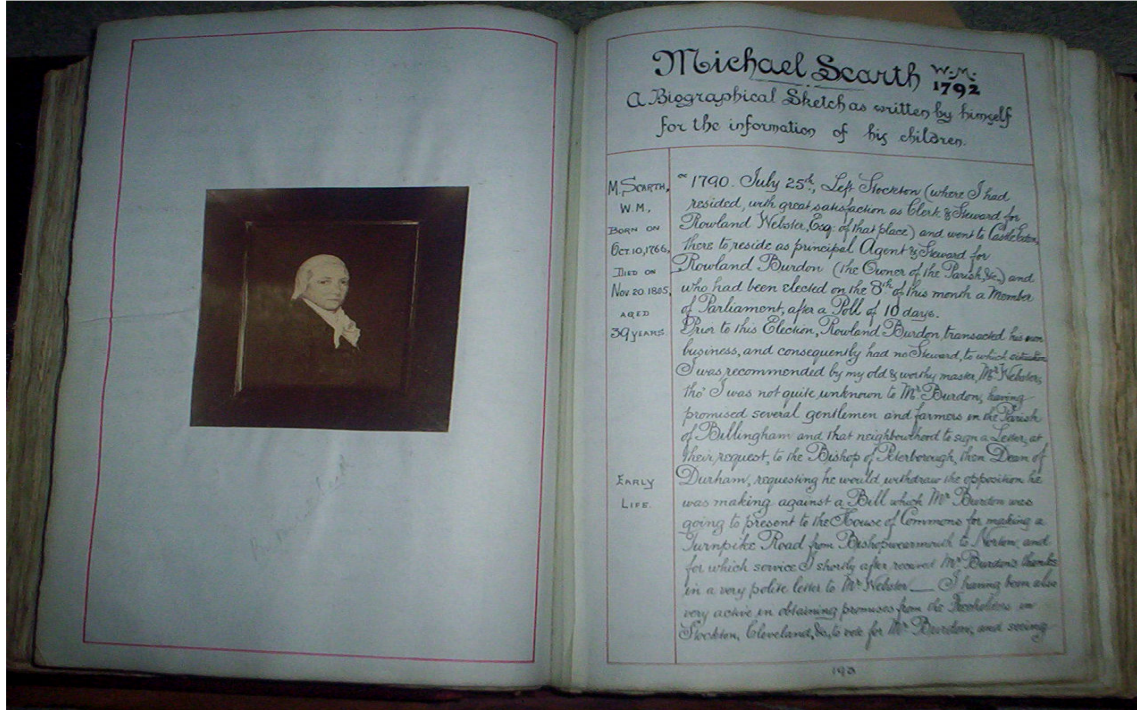 Michael Scarth W.M.
1792
A Biographical Sketch as written by himself
for the information of his children.
M. SCARTH,
W.M.,
BORN ON
OCT. 10, 1766,
DIED ON
NOV 20 1805,
AGED
39 YEARS.
EARLY
LIFE.
" 1790. July 25th, Left Stockton (where I had
resided, with great satisfaction as Clerk & Steward for
Rowland Webster, Esq. of that place) and went to Castle Eden,
there to reside as principal Agent & Steward for
Rowland Burdon (the Owner of the Parish &c,) and
who had been elected on the 8th of this month a Member
of Parliament, after a Poll of 10 days.
Prior to this Election, Rowland Burdon, transacted his own
business, and consequently had no Steward, to which situation
I was recommended by my old & worthy master, Mr Webster,
tho' I was not quite unknown to Mr Burdon, having
promised several gentlemen and farmers in the Parish
of Billingham and that neighbourhood to sign a Letter, at
their request, to the Bishop of Peterborough, then Dean of
Durham, requesting he would withdraw the opposition he
was making against a Bill which Mr Burdon was
going to present to the House of Commons for making a
Turnpike Road from Bishopwearmouth to Norton; and
for which service I shortly after received Mr Burdon's thanks
in a very polite letter to Mr Webster — I having been also
very active in obtaining promises from the Freeholders in
Stockton, Cleveland, &c, to vote for Mr Burdon, and seeing
193